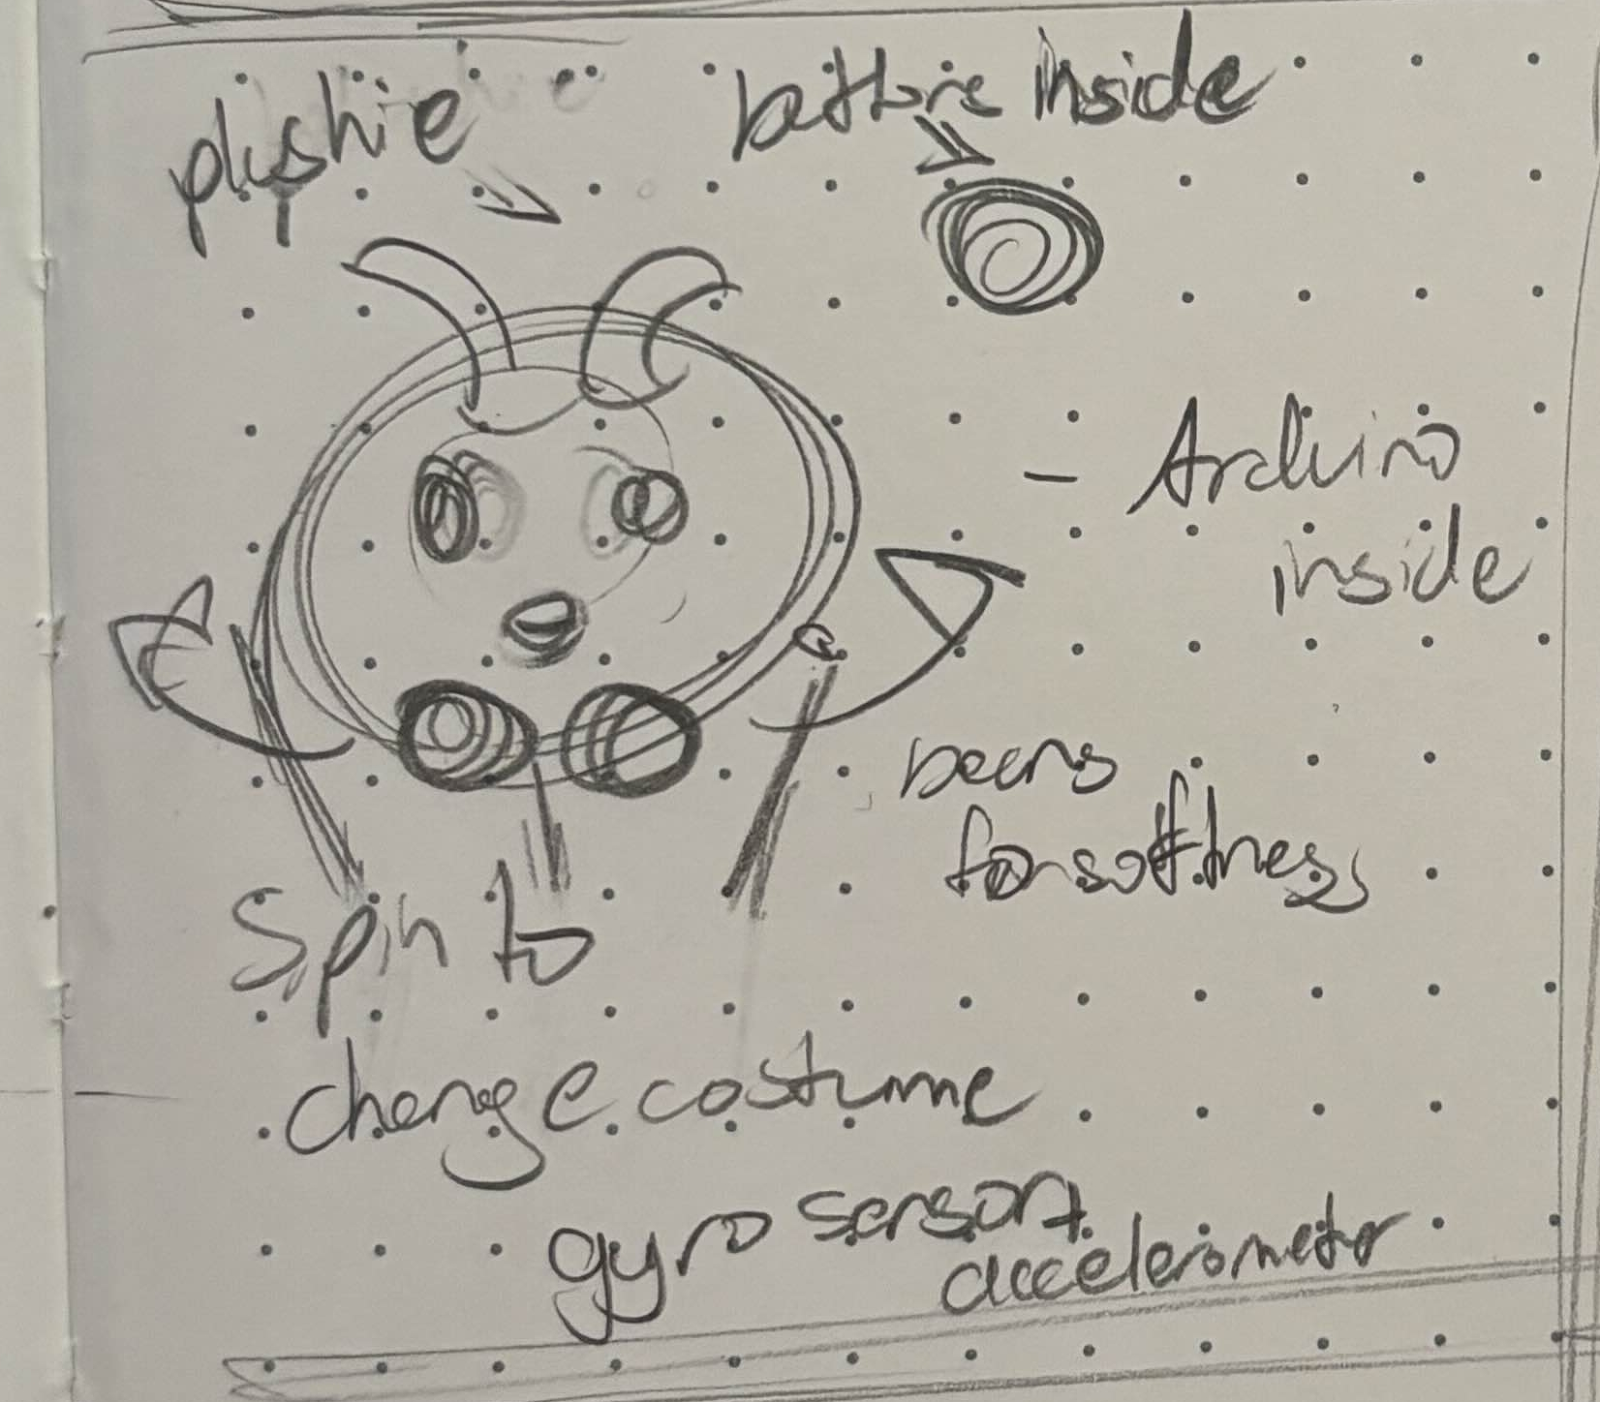 plushie
inside
- Arduino
inside
beens
for softness
Spin to
change costume
gyro sensor +
accelerometer